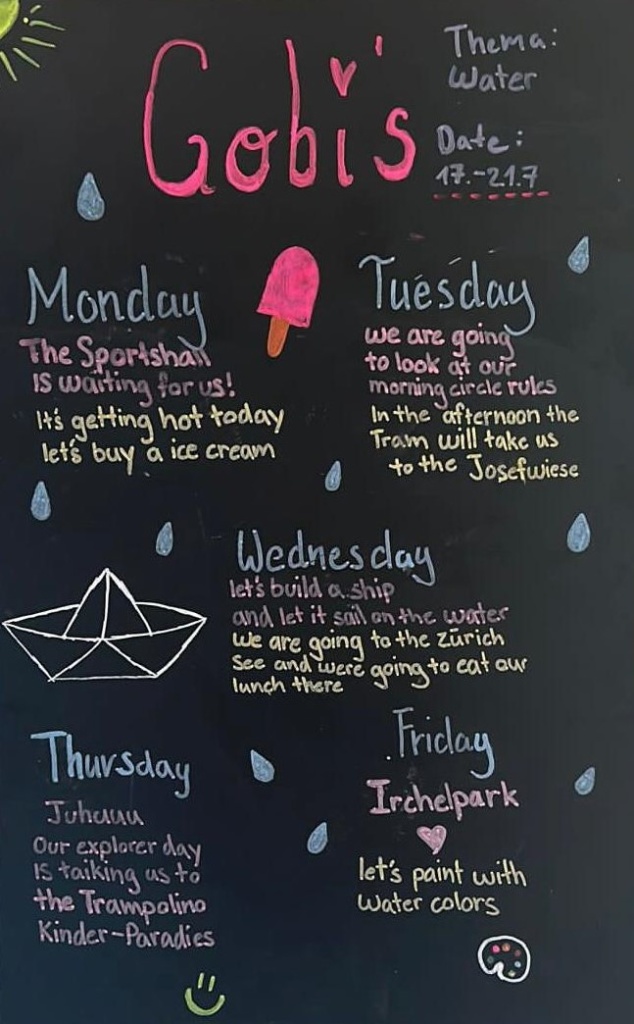 Gobi's
Thema:
Water
Date:
17.-21.7
Monday
The Sportshall
Is waiting for us!
It's getting hot today
let's buy a ice cream
Tuesday
we are going
to look at our
morning circle rules
In the afternoon the
Tram will take us
to the Josefwiese
Wednesday
let's build a ship
and let it sail on the water
we are going to the Zürich
See and were going to eat our
lunch there
Thursday
Juhuuu
Our explorer day
Is taiking us to
the Trampolino
Kinder-Paradies
Friday
Irchelpark
let's paint with
water colors